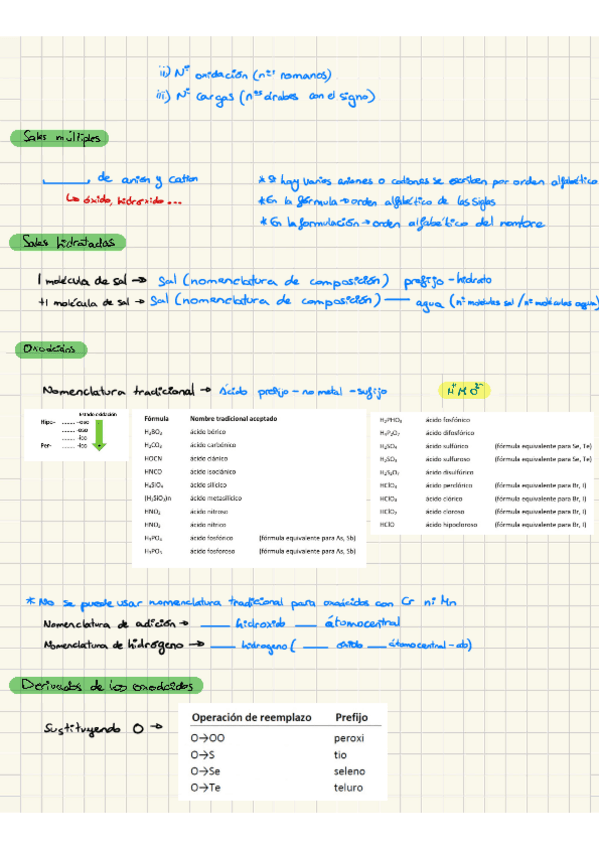 ii) Nº oxidación (nºs romanos)
iii) Nº cargas (nºs árabes con el signo)
Sales múltiples
______ de anión y catión
↳ óxido, hidróxido ...
* Si hay varios aniones o cationes se escriben por orden alfabético
* En la fórmula → orden alfabético de las siglas
* En la formulación → orden alfabético del nombre
Sales hidratadas
1 molécula de sal → Sal (nomenclatura de composición) prefijo - hidrato
+1 molécula de sal → Sal (nomenclatura de composición) — agua (nº moléculas sal / nº moléculas agua)
Oxoácidos
Nomenclatura tradicional → Ácido prefijo - no metal - sufijo
Estado oxidación
Hipo- ........ -oso
........ -oso
........ -ico
Per- ........ -ico
Fórmula Nombre tradicional aceptado
H₃BO₃ ácido bórico
H₂CO₃ ácido carbónico
HOCN ácido ciánico
HNCO ácido isociánico
H₄SiO₄ ácido silícico
(H₂SiO₃)n ácido metasilícico
HNO₂ ácido nitroso
HNO₃ ácido nítrico
H₃PO₄ ácido fosfórico (fórmula equivalente para As, Sb)
H₃PO₃ ácido fosforoso (fórmula equivalente para As, Sb)
H₂PHO₃ ácido fosfónico
H₄P₂O₇ ácido difosfórico
H₂SO₄ ácido sulfúrico (fórmula equivalente para Se, Te)
H₂SO₃ ácido sulfuroso (fórmula equivalente para Se, Te)
H₂S₂O₇ ácido disulfúrico
HClO₄ ácido perclórico (fórmula equivalente para Br, I)
HClO₃ ácido clórico (fórmula equivalente para Br, I)
HClO₂ ácido cloroso (fórmula equivalente para Br, I)
HClO ácido hipocloroso (fórmula equivalente para Br, I)
* No se puede usar nomenclatura tradicional para oxoácidos con Cr ni Mn
Nomenclatura de adición → ____ hidroxido ____ átomocentral
Nomenclatura de hidrógeno → ____ hidrogeno ( ____ óxido ____ átomocentral-ato)
Derivados de los oxoácidos
Sustituyendo O →
Operación de reemplazo Prefijo
O→OO peroxi
O→S tio
O→Se seleno
O→Te teluro